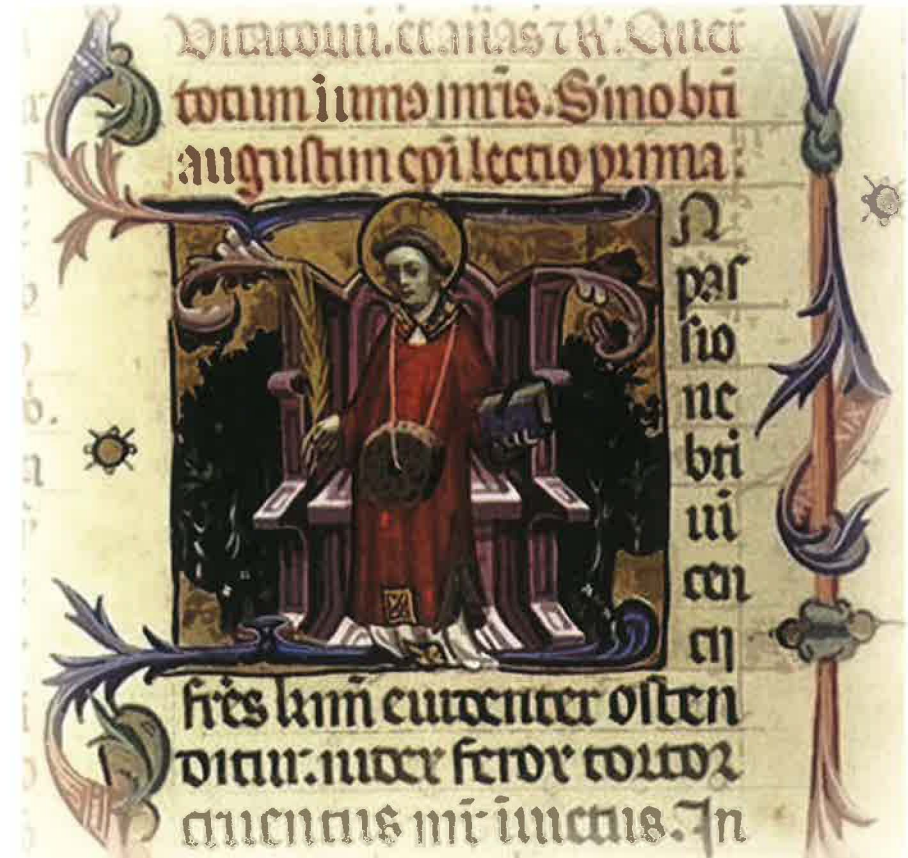 et
totum mris. Smo bti
augustini epi lectio prima:
N
pas
sio
ne
bti
ui
cen
cij
fres kmi euidenter osten
ditur. iudex ferox tortor
cruentus mr inuictus. In